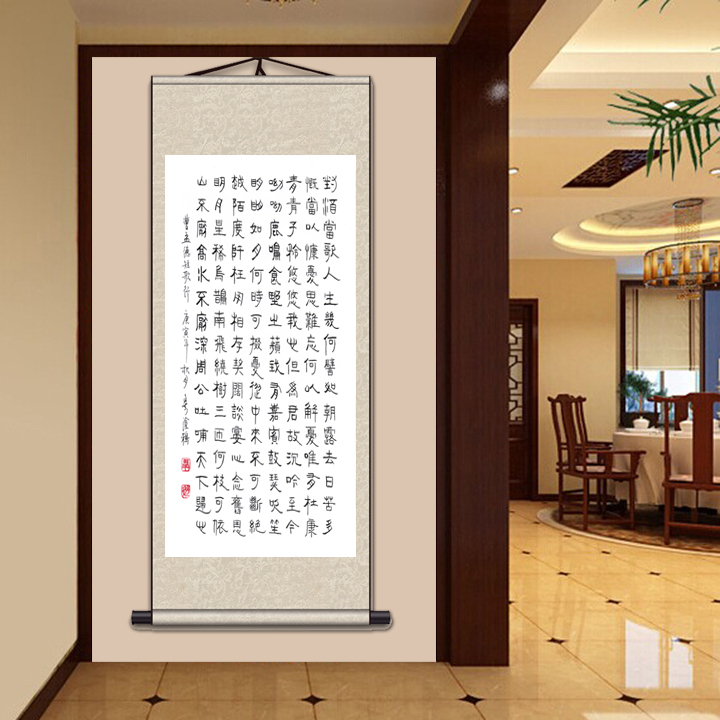 對酒當歌人生幾何譬如朝露去日苦多
慨當以慷憂思難忘何以解憂唯有杜康
青青子衿悠悠我心但為君故沉吟至今
呦呦鹿鳴食野之蘋我有嘉賓鼓瑟吹笙
明明如月何時可掇憂從中來不可斷絕
越陌度阡枉用相存契闊談宴心念舊恩
明月星稀烏鵲南飛繞樹三匝何枝可依
山不厭高水不厭深周公吐哺天下歸心
曹孟德短歌行 庚寅年秋月